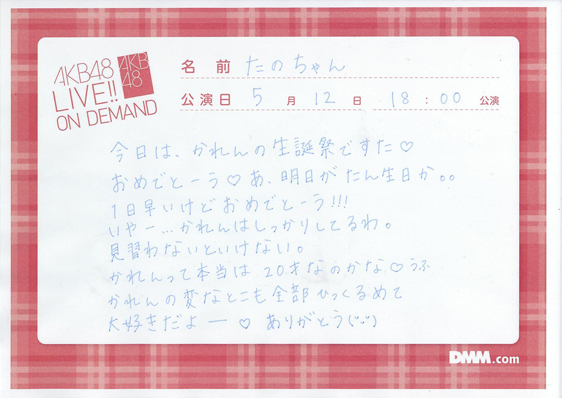 AKB48
LIVE!!
ON DEMAND
AKB
48
名前 たのちゃん
公演日 5月12日 18:00公演
今日は、かれんの生誕祭ですた♡
おめでとーう♡あ、明日がたん生日か。。
1日早いけどおめでとーう!!!
いやー…かれんはしっかりしてるわ。
見習わないといけない。
かれんって本当は20才なのかな♡うふ
かれんの変なとこも全部ひっくるめて
大好きだよー♡ ありがとう
DMM.com